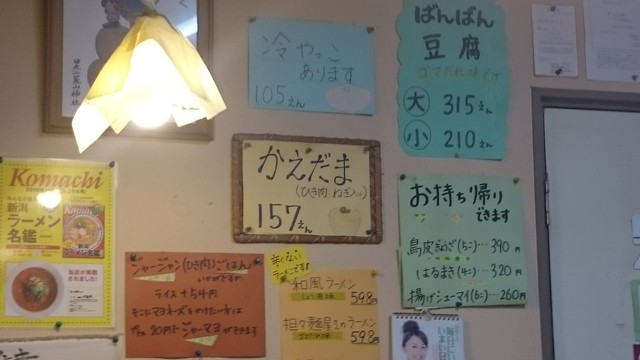 冷やっこ
あります
105えん
ばんばん
豆腐
ゴマだれ味です
大 315えん
小 210えん
かえだま
(ひき肉、ねぎ入り)
157えん
お持ち帰り
できます
鳥皮ぎょうざ(5こ)…390円
はるまき(4こ)…320円
揚げシューマイ(6こ)…260円
Komachi
新潟
ラーメン
名鑑
Komachi
ジャージャン(ひき肉)ごはん
いかがですか
ライス+54円
そこにマヨネーズをかけたい方は
プラス20円で ジャーマヨができます
辛くない
ラーメンです!
和風ラーメン
598円
担々麺屋さんのラーメン
598円